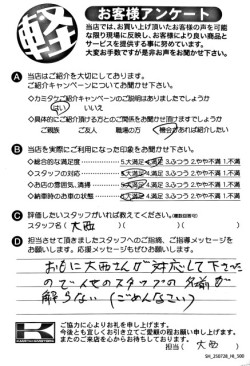 軽
お客様アンケート
当店では、お買い上げ頂いたお客様の声を可能
な限り現場に反映し、お客様により良い商品と
サービスを提供する事に努めています。
大変お手数ですが是非お声をお聞かせ下さい。
A 当店はご紹介を大切にしております。
ご紹介キャンペーンについてお聞かせ下さい。
◇カミタケご紹介キャンペーンのご説明はありましたでしょうか
はい いいえ
◇具体的にご紹介頂ける方とのご関係をお聞かせ頂けますでしょうか
ご親族 ご友人 職場の方 機会があれば紹介したい
B 当店を実際にご利用になった印象をお聞かせ下さい。
◇総合的な満足度 5.大満足 4.満足 3.ふつう 2.やや不満 1.不満
◇スタッフの対応 5.大満足 4.満足 3.ふつう 2.やや不満 1.不満
◇お店の雰囲気、清掃 5.大満足 4.満足 3.ふつう 2.やや不満 1.不満
◇納車時のお車の状態 5.大満足 4.満足 3.ふつう 2.やや不満 1.不満
C 評価したいスタッフがいれば教えてください。(複数回答可)
スタッフ名( 大西 )( )( )
D 担当させて頂きましたスタッフへのご指摘、ご指導メッセージを
お願いします。応援メッセージもぜひお願いします。
おもに大西さんが対応して下さった
ので他のスタッフの名前が
解らない(ごめんなさい)
K
KAMITAKE
ご協力に心よりお礼を申し上げます。
今後とも宜しくお引き立てご愛顧の程お願い申し上げます。
またのご来店を心からお待ちしております。
担当( 大西 )
SH_250728_HI_500